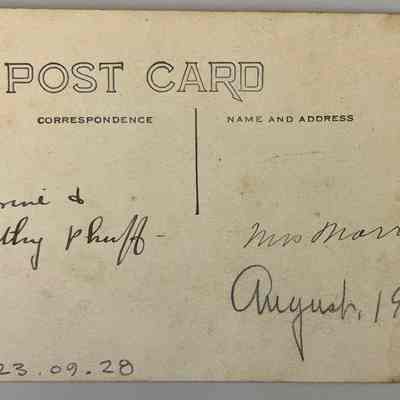 POST CARD
CORRESPONDENCE
NAME AND ADDRESS
rine &
thy Phuff-
Mrs Morr
August, 19
23.09.28